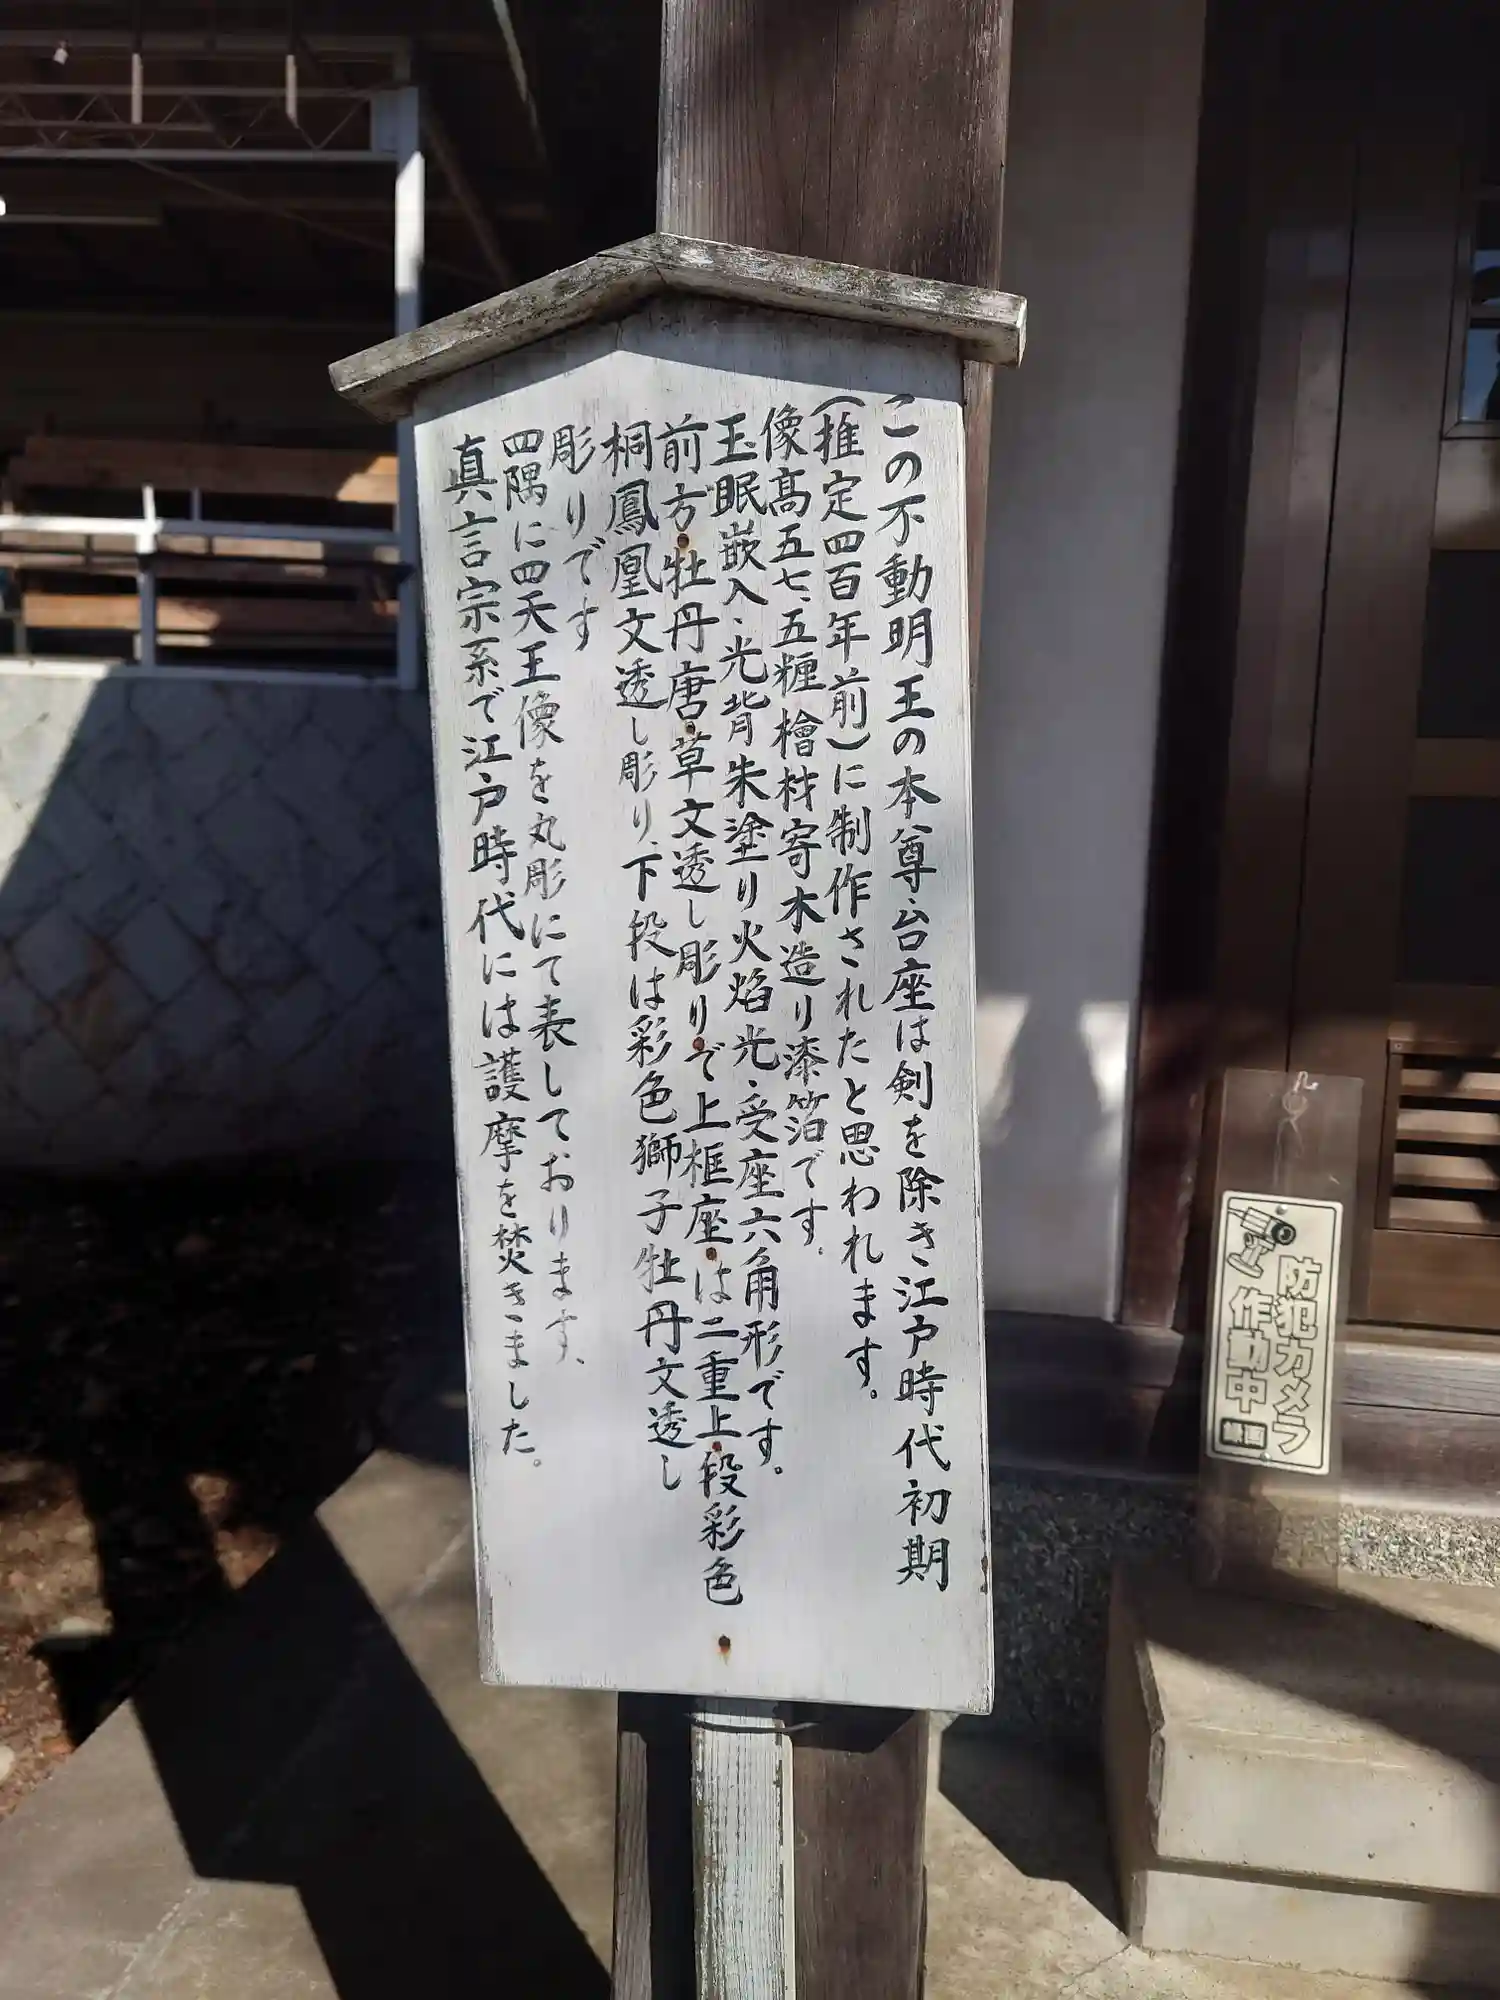 この不動明王の本尊、台座は剣を除き江戸時代初期
(推定四百年前)に制作されたと思われます。
像高五七、五糎檜材寄木造り漆箔です。
玉眼嵌入、光背朱塗り火焔光、受座六角形です。
前方、牡丹唐草文透し彫りで上框座は二重上段彩色
桐鳳凰文透し彫り、下段は彩色獅子牡丹文透し
彫りです
四隅に四天王像を丸彫にて表しております、
真言宗系で江戸時代には護摩を焚きました。
防犯カメラ
作動中
録画